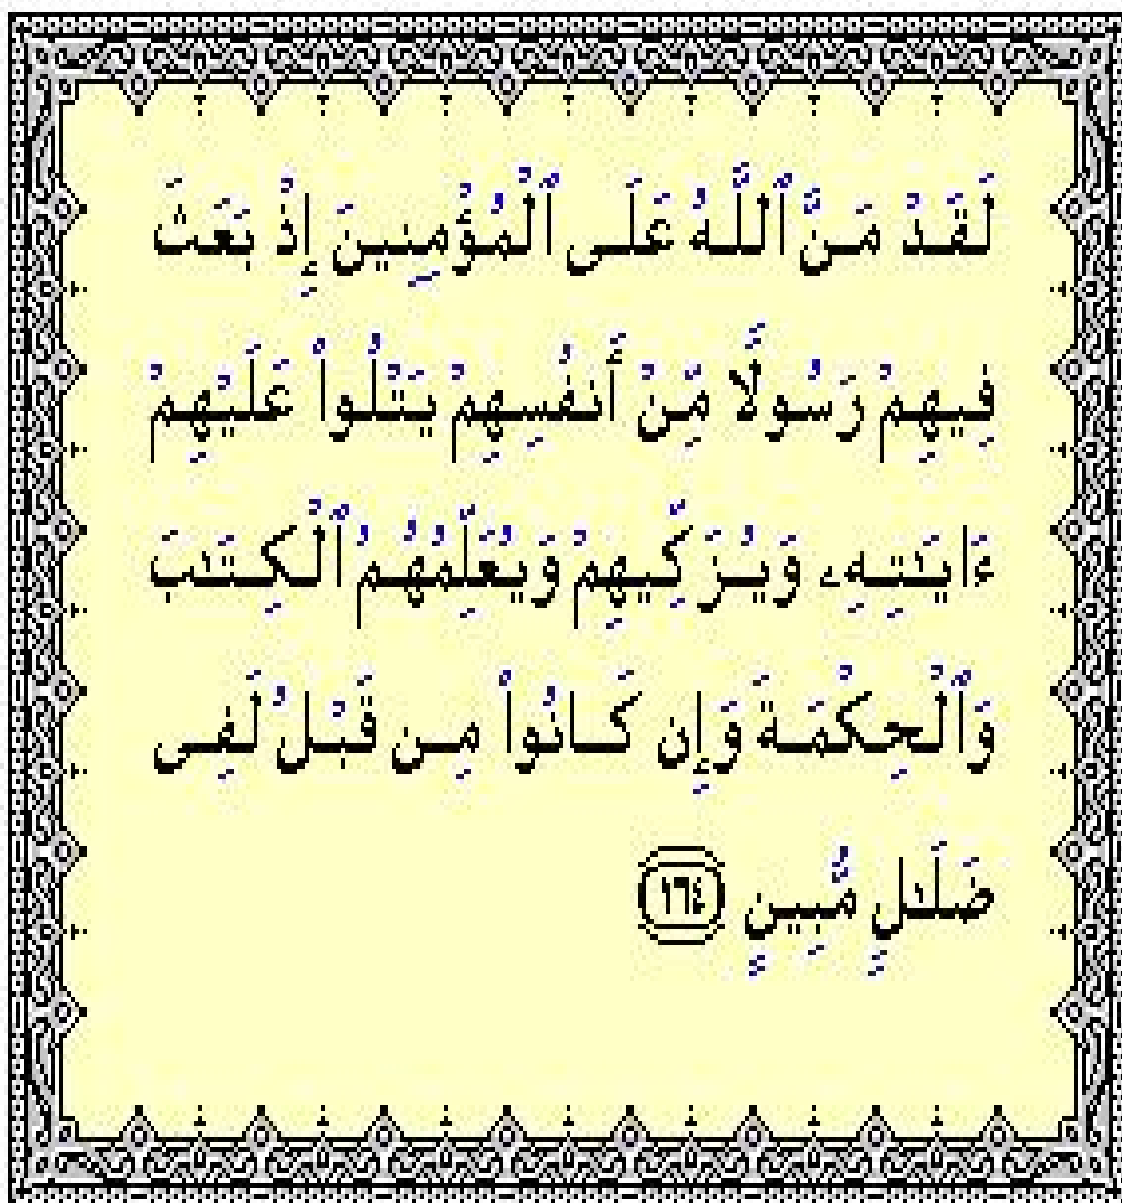 لَقَدْ مَنَّ ٱللَّهُ عَلَى ٱلْمُؤْمِنِينَ إِذْ بَعَثَ
فِيهِمْ رَسُولًا مِّنْ أَنفُسِهِمْ يَتْلُوا۟ عَلَيْهِمْ
ءَايَـٰتِهِۦ وَيُزَكِّيهِمْ وَيُعَلِّمُهُمُ ٱلْكِتَـٰبَ
وَٱلْحِكْمَةَ وَإِن كَانُوا۟ مِن قَبْلُ لَفِى
ضَلَـٰلٍ مُّبِينٍ ١٦٤